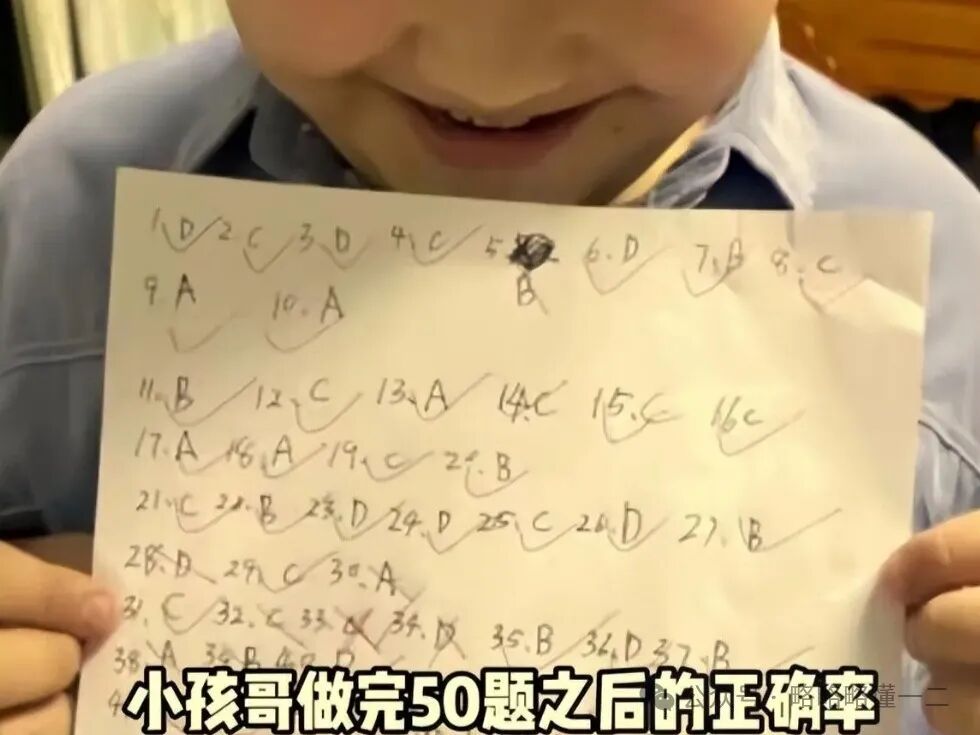 1 D 2 C 3. D 4. C 5 B 6. D 7. B 8. C
9. A 10. A
11. B 12. C 13. A 14. C 15. C 16 C
17. A 18. A 19. C 20. B
21. C 22. B 23. D 24. D 25. C 26. D 27. B
28. D 29. C 30. A
31. C 32. C 33 34. D 35. B 36. D 37. B
38. A 39. B 40. D
4
小孩哥做完50题之后的正确率
公众号 · 略略略懂一二